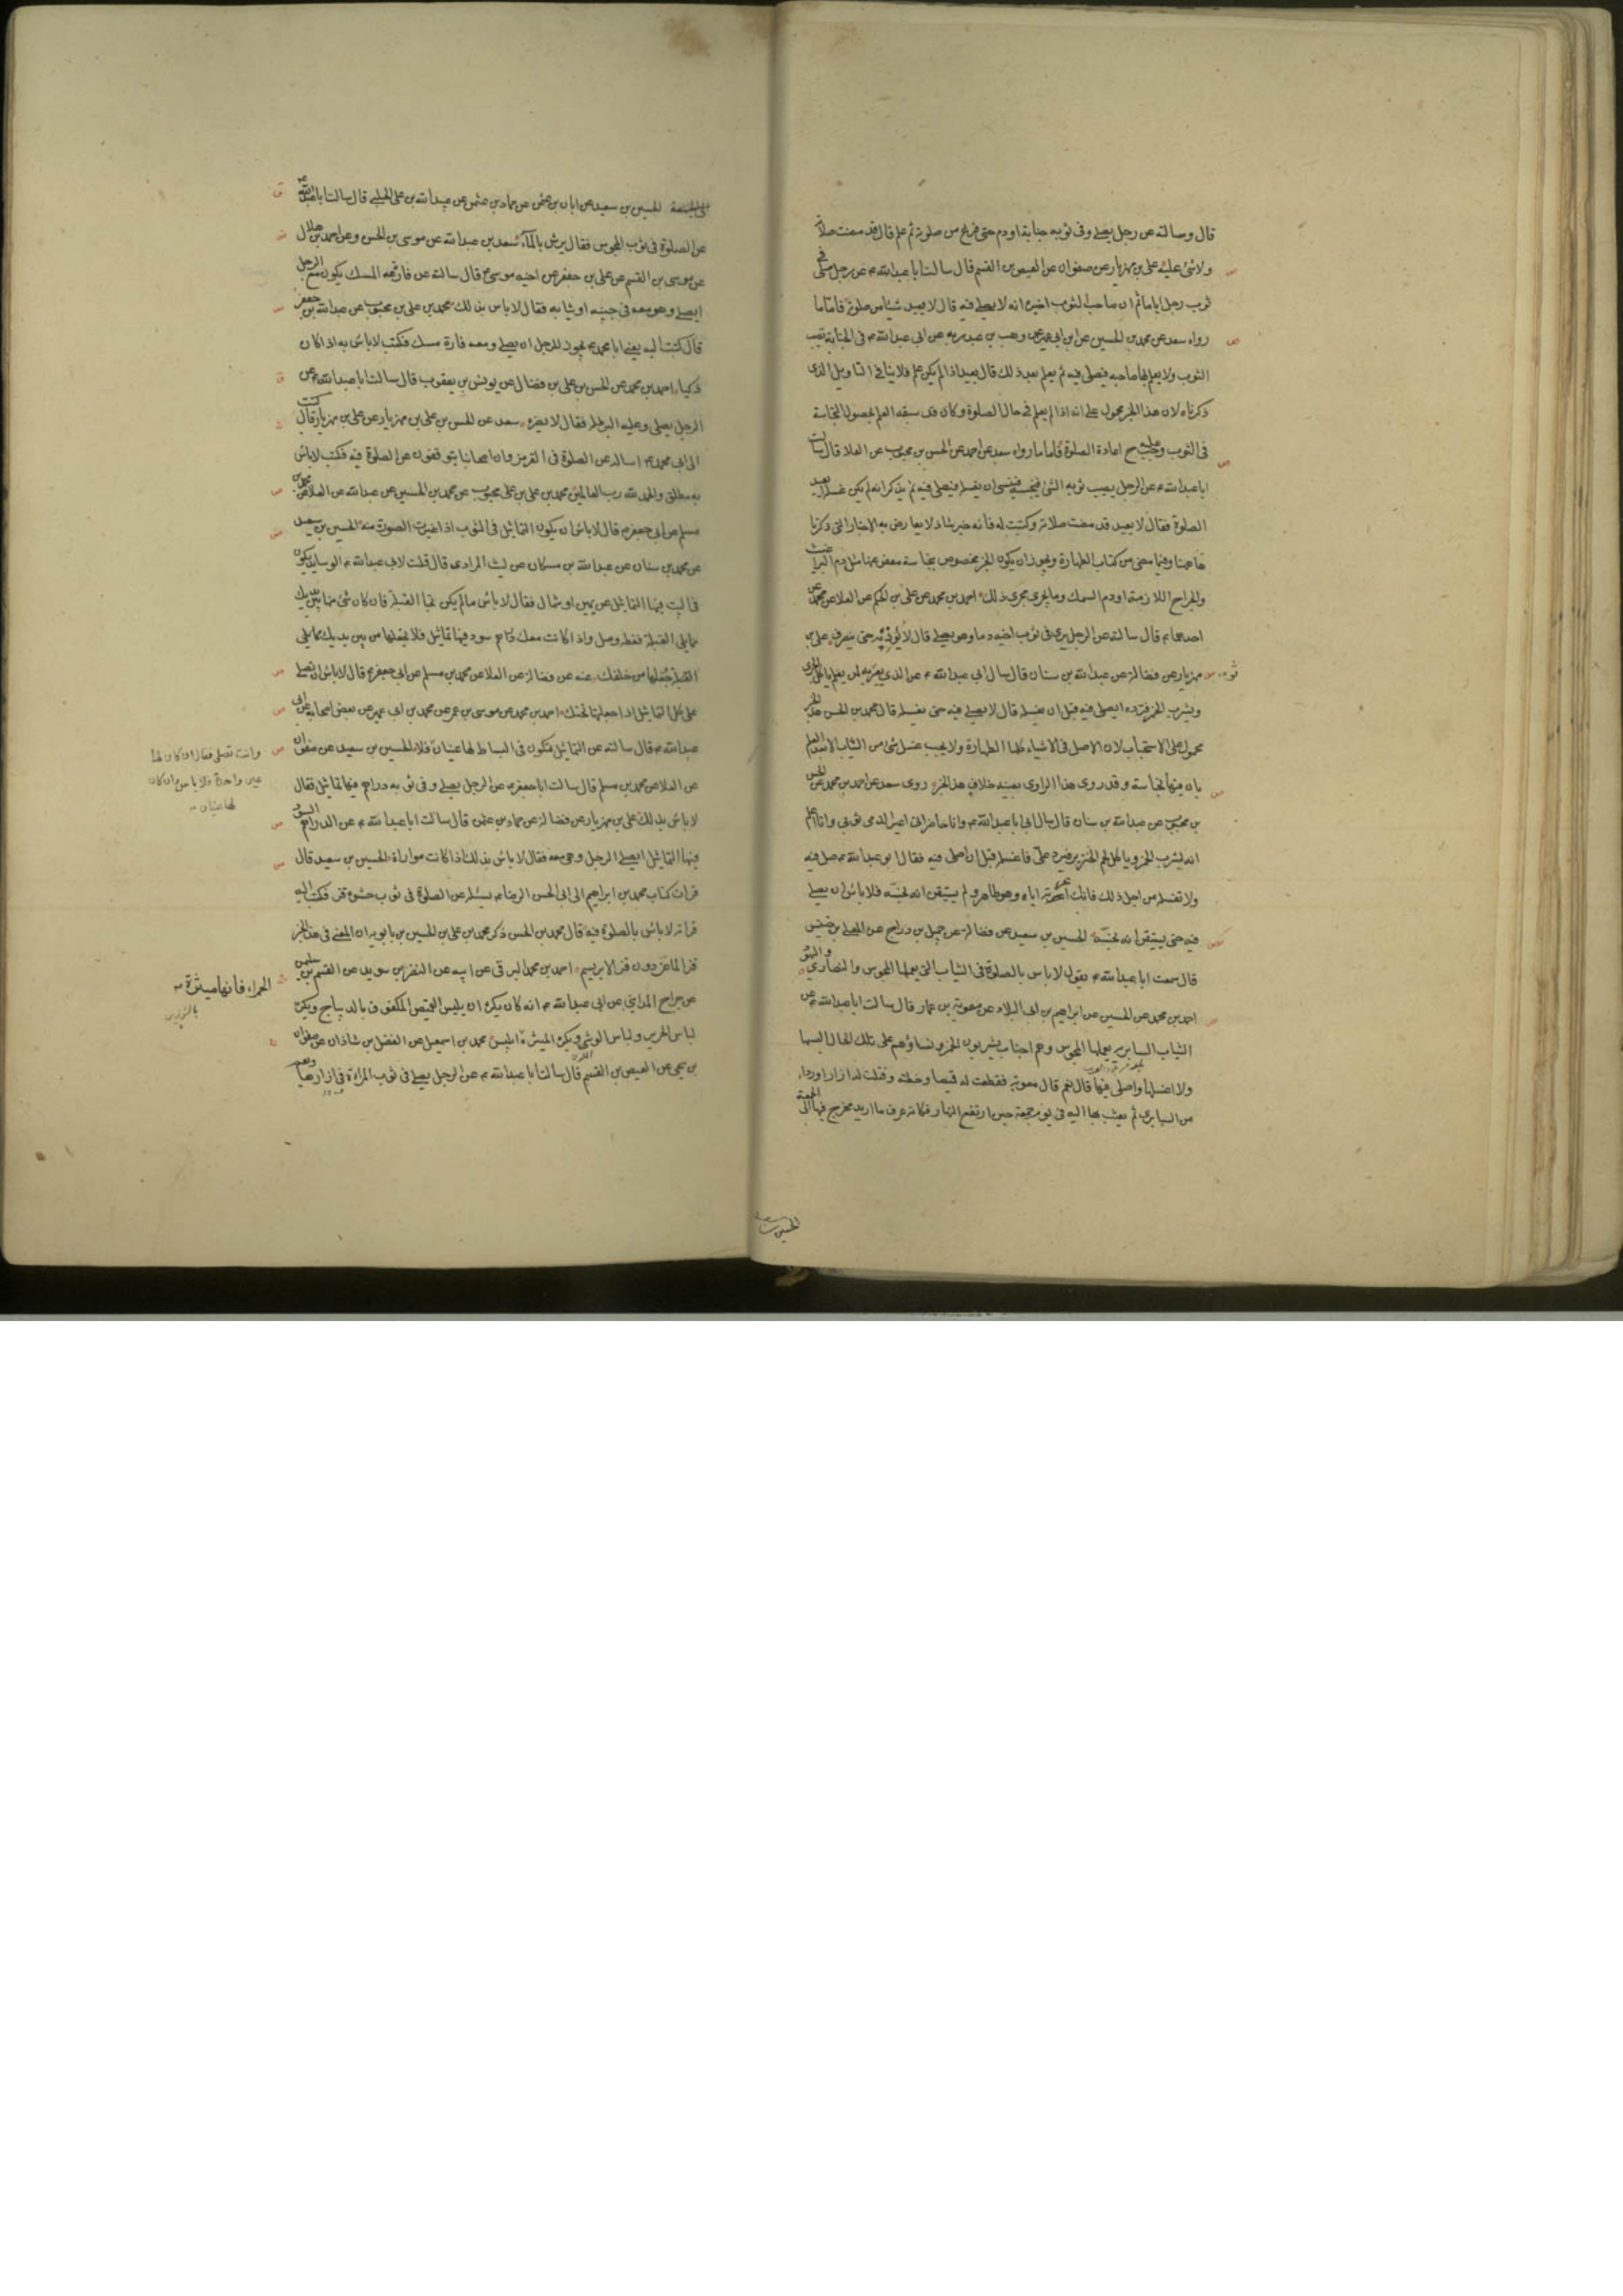 قال وسالته عن رجل يصلي وفي ثوبه جنابة او دم حتى فرغ من صلوته ثم علم قال قد مضت صلاته
ولا شئ عليه علي بن مهزيار عن صفوان عن العيص بن القسم قال سالت ابا عبدالله ع عن رجل صلى في
ثوب رجل اياما ثم ان صاحب الثوب اخبره انه لا يصلي فيه قال لا يعيد شيئا من صلوته فاما ما
رواه سعد عن محمد بن الحسين عن ابن ابي عمير عن وهب بن عبد ربه عن ابي عبدالله ع في الجنابة تصيب
الثوب ولا يعلم بها صاحبه فيصلي فيه ثم يعلم بعد ذلك قال يعيد اذا لم يكن علم فلا ينافي التاويل الذي
ذكرناه لان هذا الخبر محمول على انه اذا لم يعلم في حال الصلوة وكان قد سبقه العلم بحصول النجاسة
في الثوب وجب عليه ح اعادة الصلوة فاما ما رواه سعد عن احمد عن الحسن بن محبوب عن العلا قال سالت
ابا عبدالله ع عن الرجل يصيب ثوبه الشئ فينجسه فينسى ان يغسله فيصلي فيه ثم يذكر انه لم يكن غسله ايعيد
الصلوة فقال لا يعيد قد مضت صلاته وكتبت له فانه خبر شاذ لا يعارض به الاخبار التي ذكرنا
هاهنا وفيما مضى من كتاب الطهارة ويجوز ان يكون الخبر مخصوص بنجاسة معفو عنها مثل دم البراغيث
والجراح اللازمة او دم السمك وما يجرى مجرى ذلك احمد بن محمد عن علي بن الحكم عن العلا عن محمد عن
احدهما ع قال سالته عن الرجل يرى في ثوب اخيه دما وهو يصلي قال لا يؤذنه حتى ينصرف علي بن
مهزيار عن فضالة عن عبدالله بن سنان قال سال ابي عبدالله ع عن الذي يعير ثوبه لمن يعلم ياكل الجرى
ويشرب الخمر فيرده ايصلي فيه قبل ان يغسله قال لا يصلي فيه حتى يغسله قال محمد بن الحسن هذا الخبر
محمول على الاستحباب لان الاصل في الاشياء كلها الطهارة ولا يجب غسل شئ من الثياب الا بعد العلم
بان فيها نجاسة وقد روى هذا الراوي بعينه خلاف هذا الخبر روى سعد عن احمد بن محمد عن الحسن
بن محبوب عن عبدالله بن سنان قال سال ابي ابا عبدالله ع وانا حاضر اني اعير الذمي ثوبي وانا اعلم
انه يشرب الخمر وياكل لحم الخنزير فيرد علي فاغسله قبل ان اصلي فيه فقال ابو عبدالله ع صل فيه
ولا تغسله من اجل ذلك فانك اعرته اياه وهو طاهر ولم يستيقن انه نجسه فلا باس ان يصلي
فيه حتى يستيقن انه نجسه الحسين بن سعيد عن فضالة عن جميل بن دراج عن المعلى بن خنيس
قال سمعت ابا عبدالله ع يقول لا باس بالصلوة في الثياب التي يعملها المجوس والنصارى واليهود
احمد بن محمد عن الحسين عن ابراهيم بن ابي البلاد عن معوية بن عمار قال سالت ابا عبدالله ع عن
الثياب السابرية يعملها المجوس وهم اجناب يشربون الخمر ونساؤهم على تلك الحال البسها
ولا اغسلها واصلي فيها قال نعم قال معوية فقطعت له قميصا وخطته وفتلت له ازرارا ورداء
من السابري ثم بعثت بها اليه في يوم جمعة حين ارتفع النهار فكانه عرف ما اريد فخرج فيها الى الجمعة
الحسين بن سعيد
الى الجمعة الحسين بن سعيد عن ابان بن عثمن عن حماد بن عثمن عن عبيدالله بن علي الحلبي قال سالت ابا عبدالله ع
عن الصلوة في ثوب المجوس فقال يرش بالماء سعد بن عبدالله عن موسى بن الحسن وعن احمد بن هلال
عن موسى بن القسم عن علي بن جعفر عن اخيه موسى ع قال سالته عن فارة المسك يكون مع الرجل
ايصلي وهو معه في جيبه او ثيابه فقال لا باس بذلك محمد بن علي بن محبوب عن عبدالله بن جعفر
قال كتبت اليه يعني ابا محمد ع يجوز للرجل ان يصلي ومعه فارة مسك فكتب لا باس به اذا كان
ذكيا احمد بن محمد عن الحسن بن علي بن فضال عن يونس بن يعقوب قال سالت ابا عبدالله ع عن
الرجل يصلي وعليه البرطلة فقال لا يضره سعد عن الحسن بن علي بن مهزيار عن علي بن مهزيار قال كتبت
الى ابي محمد ع اساله عن الصلوة في القرمز وان اصحابنا يتوقفون عن الصلوة فيه فكتب لا باس
به مطلق والحمد لله رب العالمين محمد بن علي بن محبوب عن محمد بن الحسين عن عبدالله عن العلا عن محمد بن
مسلم عن ابي جعفر ع قال لا باس ان يكون التماثيل في الثوب اذا غيرت الصورة منه الحسين بن سعيد
عن محمد بن سنان عن عبدالله بن مسكان عن ليث المرادى قال قلت لابي عبدالله ع الوسايد يكون
في البيت فيها التماثيل عن يمين او شمال فقال لا باس ما لم يكن تجاه القبلة فان كان شئ منها بين يديك
مما يلي القبلة فغطه وصل واذا كانت معك دراهم سود فيها تماثيل فلا تجعلها من بين يديك مما يلي
القبلة واجعلها من خلفك عنه عن فضالة عن العلا عن محمد بن مسلم عن ابي جعفر ع قال لا باس ان تصلي
على كل التماثيل اذا جعلتها تحتك احمد بن محمد عن موسى بن عمر عن محمد بن ابي عمير عن بعض اصحابه عن ابي
عبدالله ع قال سالته عن التماثيل تكون في البساط لها عينان فلا الحسين بن سعيد عن صفوان
وانت تصلي فقال ان كان لها
عين واحدة فلا باس وان كان
لها عينان
عن العلا عن محمد بن مسلم قال سالت ابا جعفر ع عن الرجل يصلي وفي ثوبه دراهم فيها تماثيل فقال
لا باس بذلك علي بن مهزيار عن فضالة عن حماد بن عثمن قال سالت ابا عبدالله ع عن الدراهم السود
فيها التماثيل ايصلي الرجل وهي معه فقال لا باس بذلك اذا كانت مواراة الحسين بن سعيد قال
قرات كتاب محمد بن ابراهيم الى ابي الحسن الرضا ع يسئله عن الصلوة في ثوب حشوه قز فكتب اليه
قراته لا باس بالصلوة فيه قال محمد بن الحسن ذكر محمد بن علي بن الحسين بن بابويه ان المعنى في هذا الخبر
قز الماعز دون قز الابريسم احمد بن محمد البرقي عن ابيه عن النضر بن سويد عن القسم بن سليمن
عن جراح المدايني عن ابي عبدالله ع انه كان يكره ان يلبس القميص المكفوف بالديباج ويكره
لباس الحرير ولباس الوشي ويكره الميثرة ابليس محمد بن اسمعيل عن الفضل بن شاذان عن صفوان
الحمراء فانها ميثرة
بن يحيى عن العيص بن القسم قال سالت ابا عبدالله ع عن الرجل يصلي في ثوب المراة في ازارها